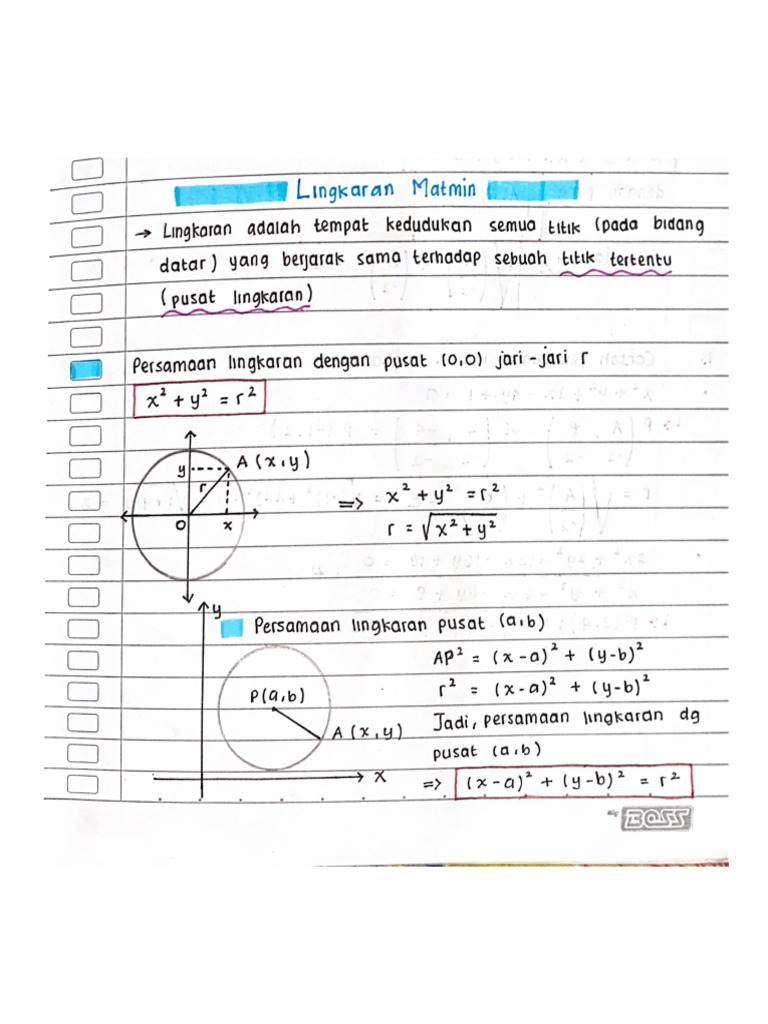 Lingkaran Matmin
→ Lingkaran adalah tempat kedudukan semua titik (pada bidang
datar) yang berjarak sama terhadap sebuah titik tertentu
(pusat lingkaran)
Persamaan lingkaran dengan pusat (0,0) jari-jari r
x² + y² = r²
A (x,y)
y
r
O
x
=> x² + y² = r²
r = √(x² + y²)
y
Persamaan lingkaran pusat (a,b)
P(a,b)
A (x,y)
x
AP² = (x-a)² + (y-b)²
r² = (x-a)² + (y-b)²
Jadi, persamaan lingkaran dg
pusat (a,b)
=> (x-a)² + (y-b)² = r²
BOSS